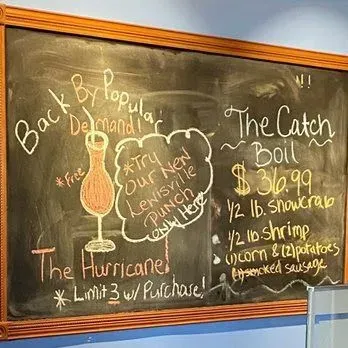 Back By Popular
Demand!
*Free
*Try
Our New
Lewisville
Punch
ONLY Here
The Hurricane!
* Limit 3 w/ Purchase!
!!
The Catch
Boil
$36.99
1/2 lb. snowcrab
1/2 lb. shrimp
(1)corn & (2)potatoes
(1)smoked sausage